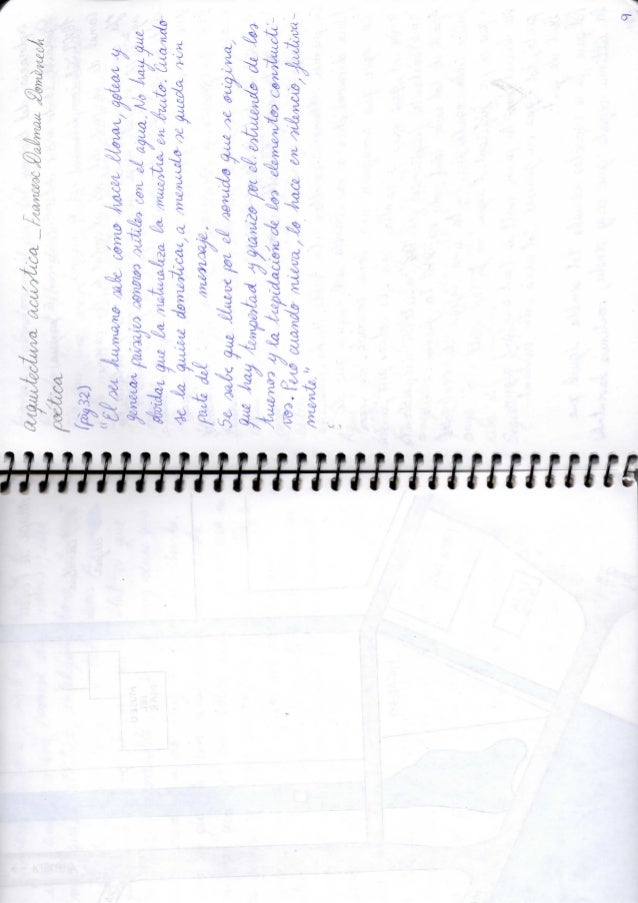 arquitectura acústica _ Francesc Dalmau Domènech
poética
(pág 32)
"El ser humano sabe cómo hacer llorar, gotear y
generar paisajes sonoros sutiles con el agua. No hay que
olvidar que la naturaleza la muestra en bruto. Cuando
se la quiere domesticar, a menudo se queda sin
parte del mensaje.
Se sabe que llueve por el sonido que se origina,
que hay tempestad y granizo por el estruendo de los
truenos y la trepidación de los elementos constructi-
vos. Pero cuando nieva, lo hace en silencio, furtiva-
mente."
9